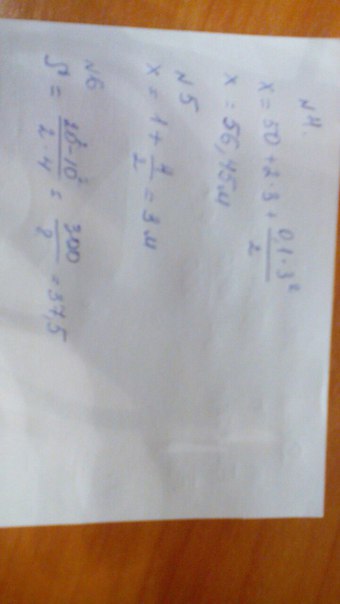 №4.
x = 50 + 2·3 + 0,1·3²/2
x = 56,45м
№5
x = 1 + 4/2 = 3м
№6
S = 20²-10²/2·4 = 300/8 = 37,5